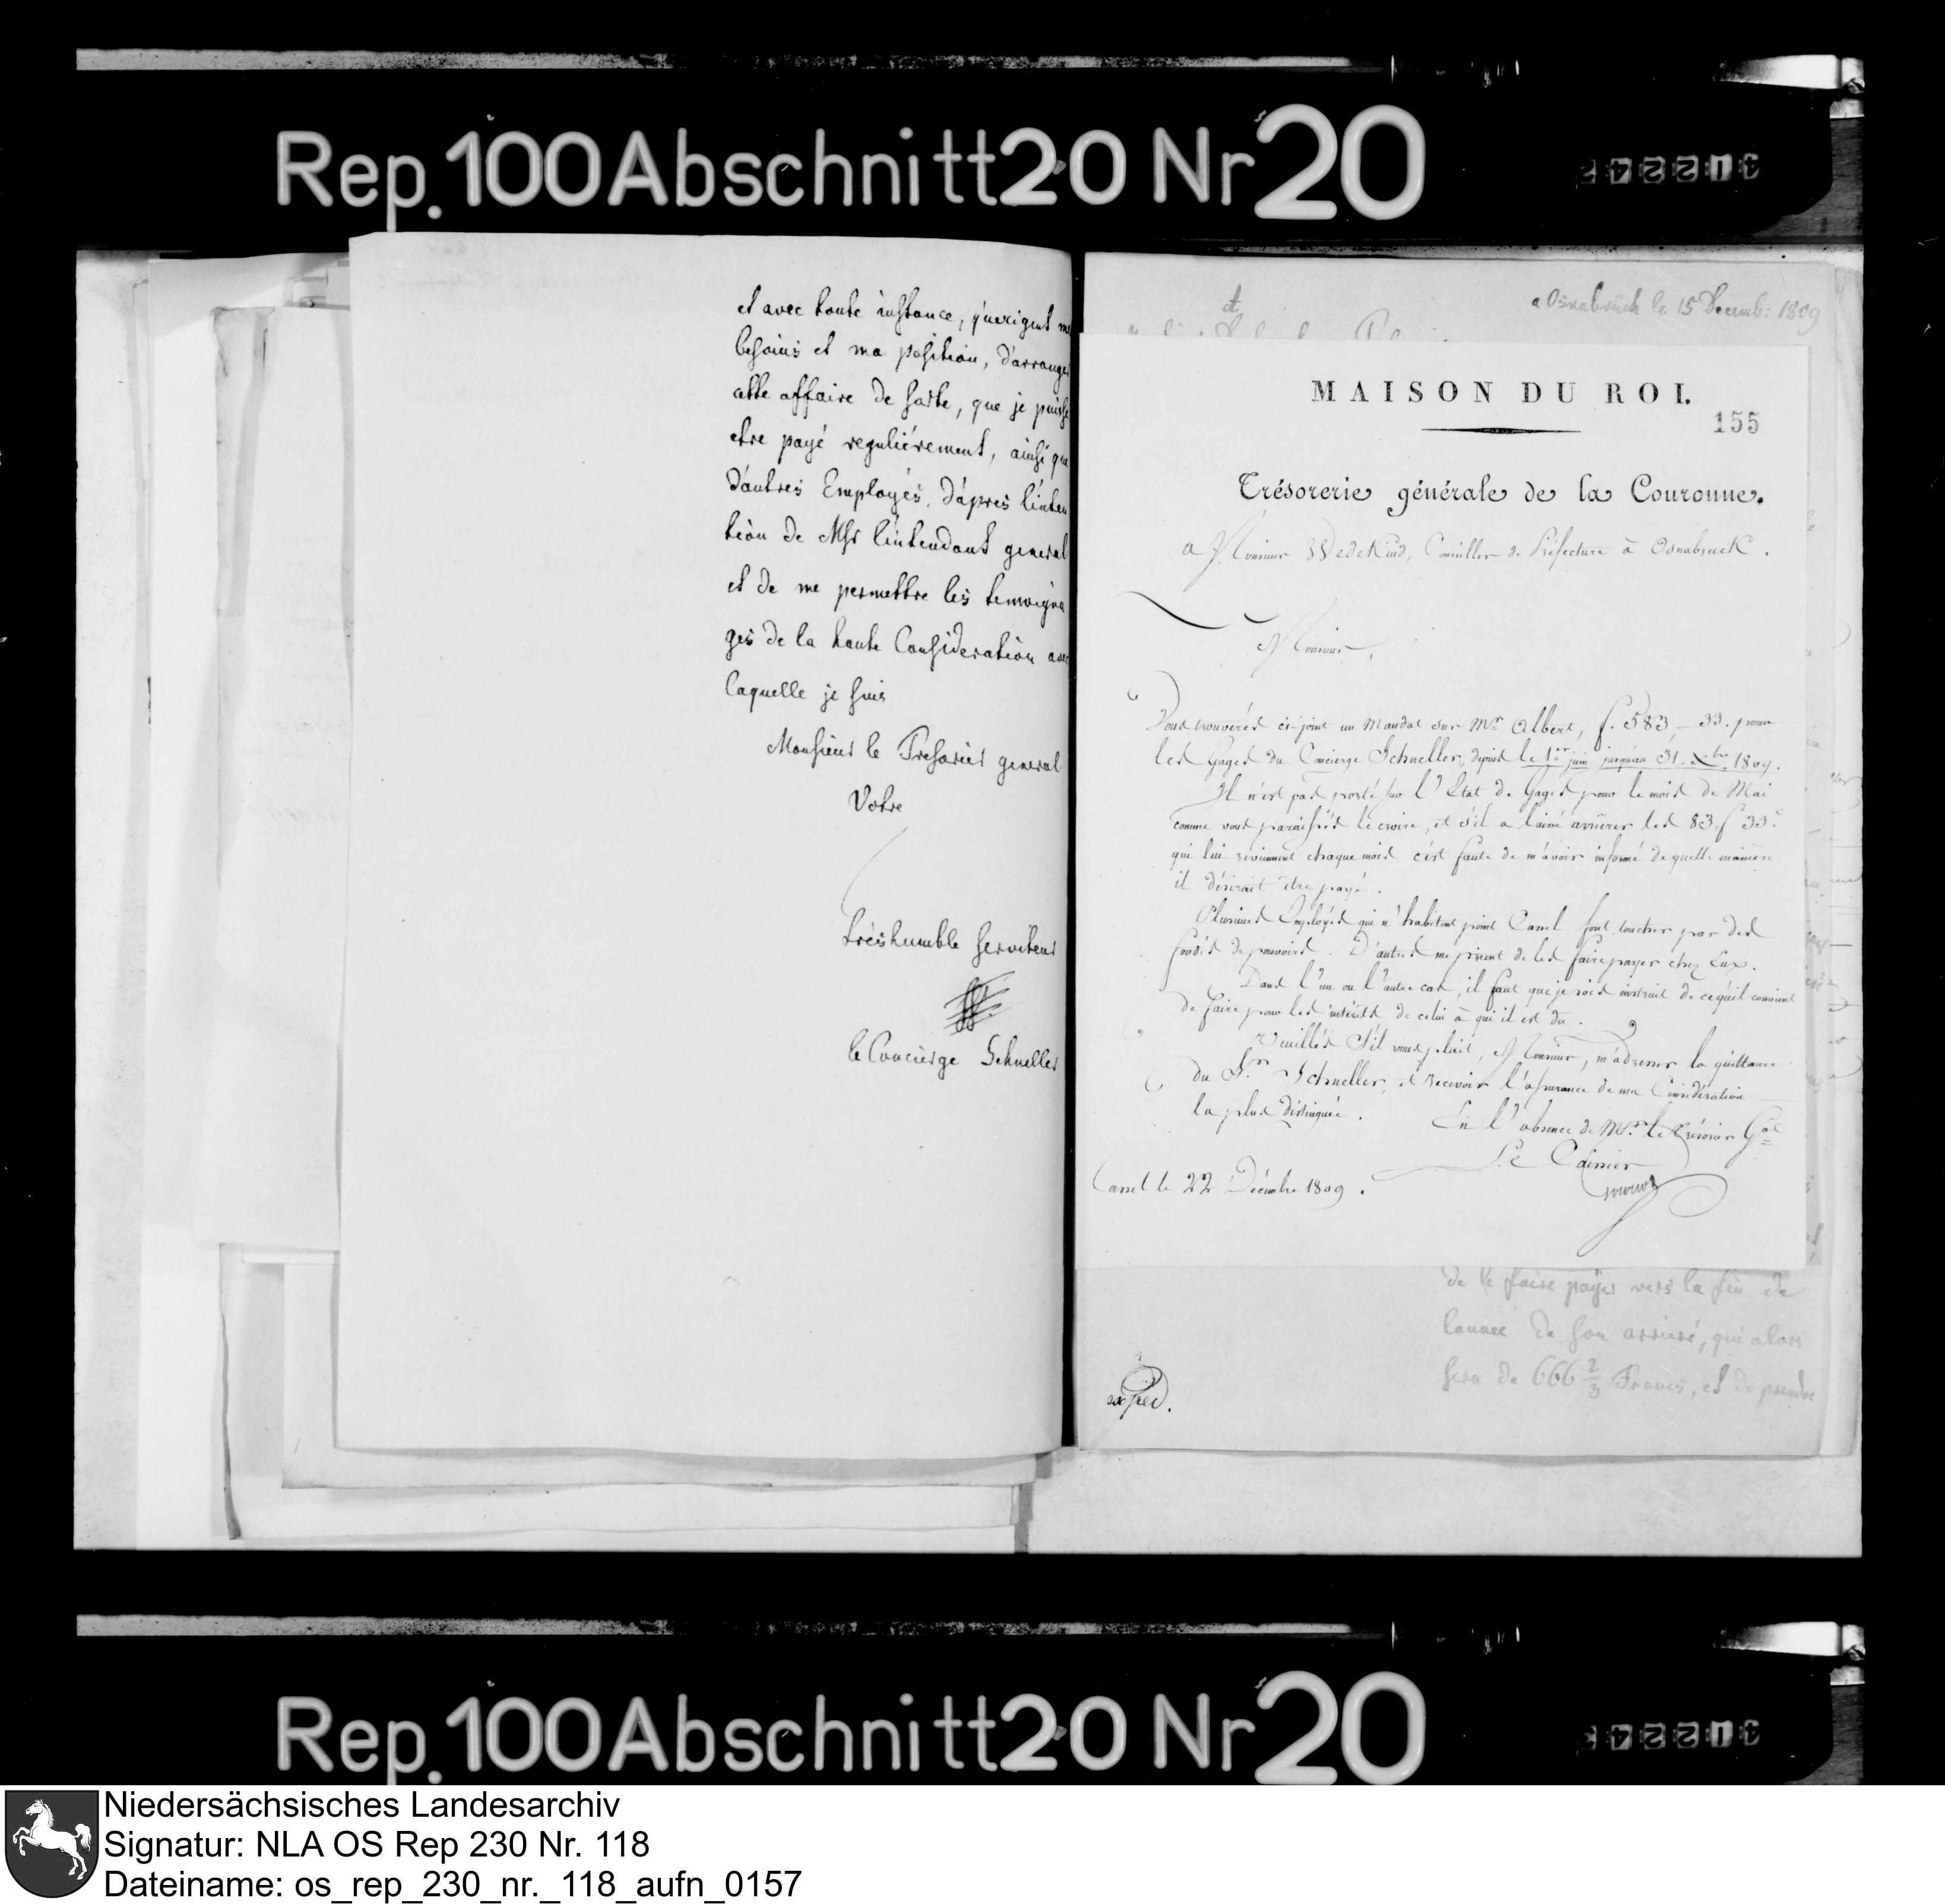 Rep. 100 Abschnitt 20 Nr 20
et avec toute instance, qu'exigent me
besoins et ma position, d'arranger
cette affaire de sorte, que je puisse
etre payé reguliérement, ainsi que
d'autres Employés, d'àpres l'inten
tion de Msr l'intendant general
et de me permettre les temoigna
ges de la haute Consideration avec
laquelle je suis
Monsieur le Tresorier general
Votre
tréshumble serviteur
le Concierge Schneller
a Osnabrück le 15 Decemb: 1809
MAISON DU ROI.
155
Trésorerie générale de la Couronne.
A Monsieur Wedekind, Conseiller de Préfecture à Osnabruck.
Monsieur,
Vous trouverés ci-joint un Mandat sur Mr. Albert, f. 583,-33. pour
les Gages du Concierge Schneller, depuis le 1er juin jusqu'au 31. Xbre 1809.
Il n'est pas porté sur l'Etat de Gages pour le mois de Mai
comme vous paraissés le croire, et s'il a laissé arriérer les 83.f 33.c
qui lui reviennent chaque mois c'est faute de m'avoir informé de quelle manière
il désirait être payé.
Plusieurs Employés qui n'habitent point Cassel font toucher par des
fondés de pouvoirs. D'autres me prient de les faire payer chez Eux.
Dans l'un ou l'autre cas, il faut que je sois instruit de ce qu'il convient
de faire pour les intérêts de celui à qui il est dû.
Veuillés s'il vous plait, Monsieur, m'adresser la quittance
du Sr. Schneller, et recevoir l'assurance de ma Considération
la plus distinguée.
En l'absence de Mr. le Trésorier Gal
Le Caissier
Cassel le 22 Décembre 1809.
de le faire payer vers la fin de
l'annee de son arrieré, qui alors
sera de 666 2/3 Francs, et de prendre
exped.
Rep. 100 Abschnitt 20 Nr 20
Niedersächsisches Landesarchiv
Signatur: NLA OS Rep 230 Nr. 118
Dateiname: os_rep_230_nr._118_aufn_0157